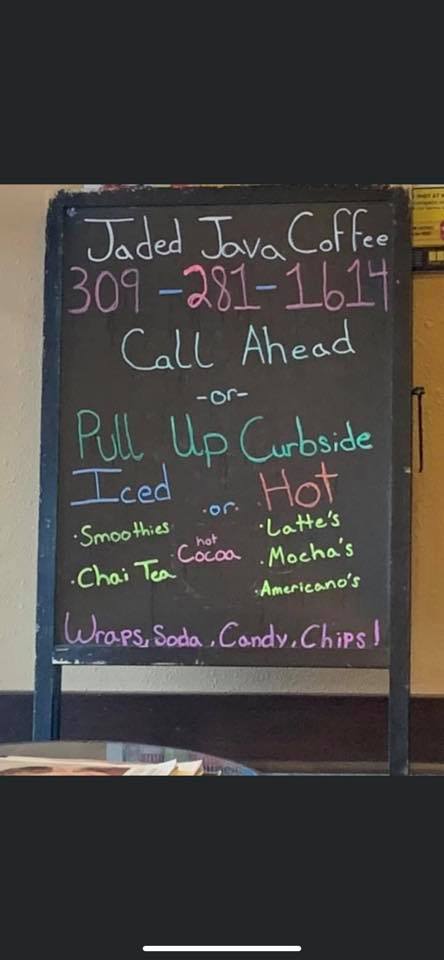 Jaded Java Coffee
309-281-1614
Call Ahead
-or-
Pull Up Curbside
Iced .or. Hot
·Smoothies
·Chai Tea
hot
Cocoa
·Latte's
·Mocha's
·Americano's
Wraps, Soda, Candy, Chips!